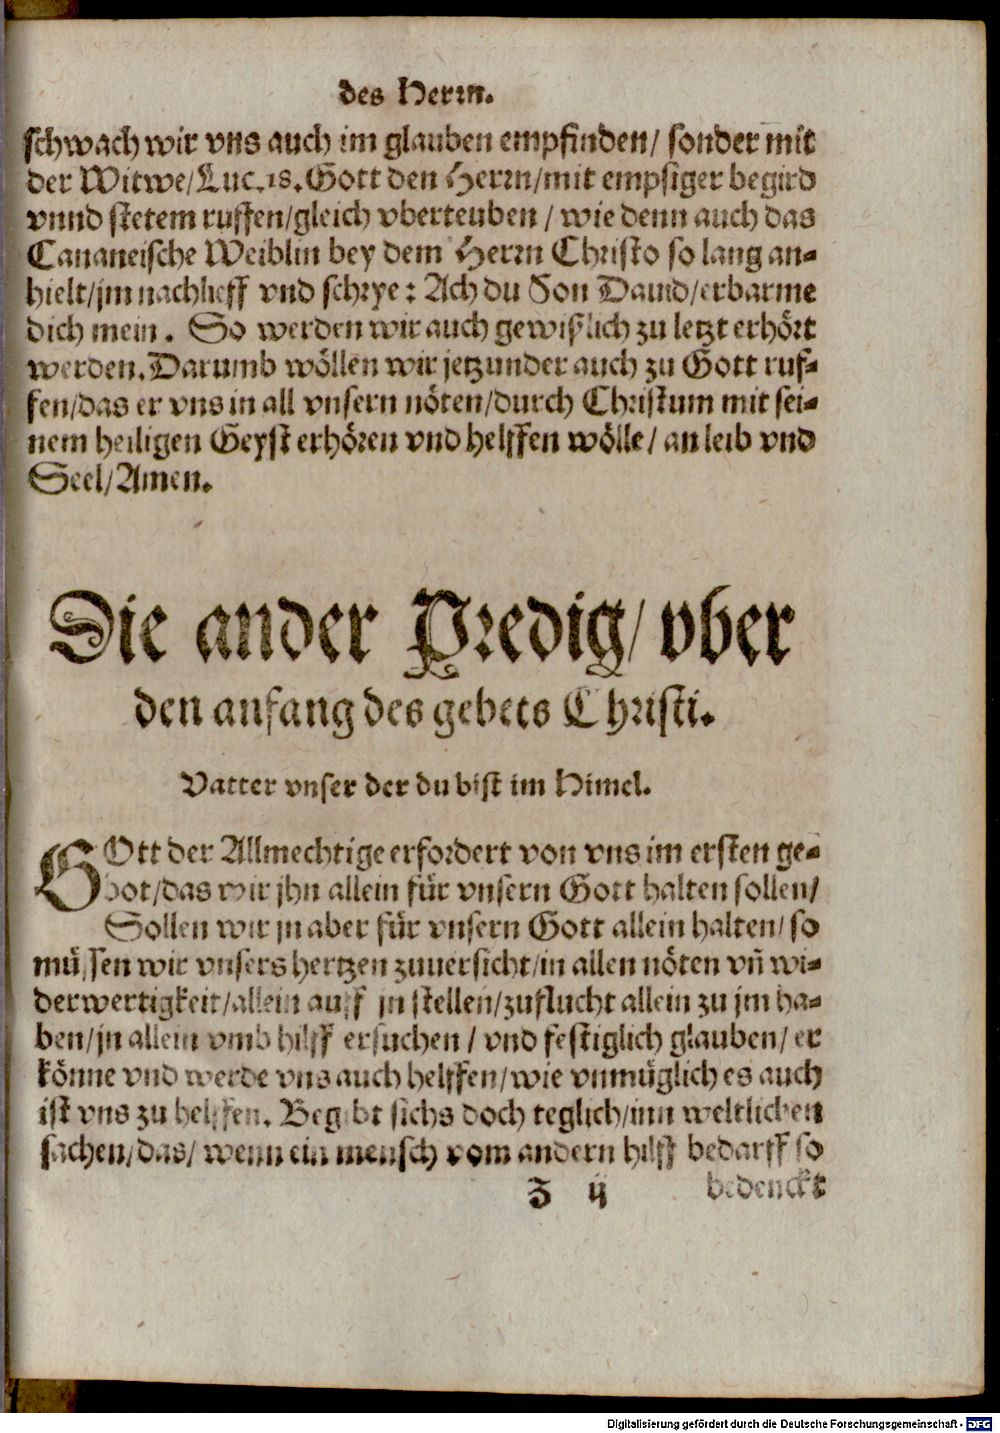 des Herrn.
schwach wir vns auch im glauben empfinden/ sonder mit
der Witwe/Luc.18.Gott den Herrn/mit empsiger begird
vnnd stetem ruffen/gleich vberteuben / wie denn auch das
Cananeische Weiblin bey dem Herrn Christo so lang an-
hielt/jm nachlieff vnd schrye: Ach du Son Dauid/erbarme
dich mein. So werden wir auch gewißlich zu letzt erhört
werden. Darumb wöllen wir jetzunder auch zu Gott ruf-
fen/das er vns in all vnsern nöten/durch Christum mit sei-
nem heiligen Geyst erhören vnd helffen wölle/ an leib vnd
Seel/Amen.
Die ander Predig/ vber
den anfang des gebets Christi.
Vatter vnser der du bist im Himel.
GOtt der Allmechtige erfordert von vns im ersten ge-
bot/das wir jhn allein für vnsern Gott halten sollen/
Sollen wir jn aber für vnsern Gott allein halten/ so
müssen wir vnsers hertzen zuuersicht/in allen nöten vñ wi-
derwertigkeit/allein auff jn stellen/zuflucht allein zu jm ha-
ben/jn allein vmb hilff ersuchen / vnd festiglich glauben/ er
könne vnd werde vns auch helffen/wie vnmüglich es auch
ist vns zu helffen. Begibt sichs doch teglich/inn weltlichen
sachen/das/ wenn ein mensch vom andern hilff bedarff so
Z ij bedenckt
Digitalisierung gefördert durch die Deutsche Forschungsgemeinschaft - DFG